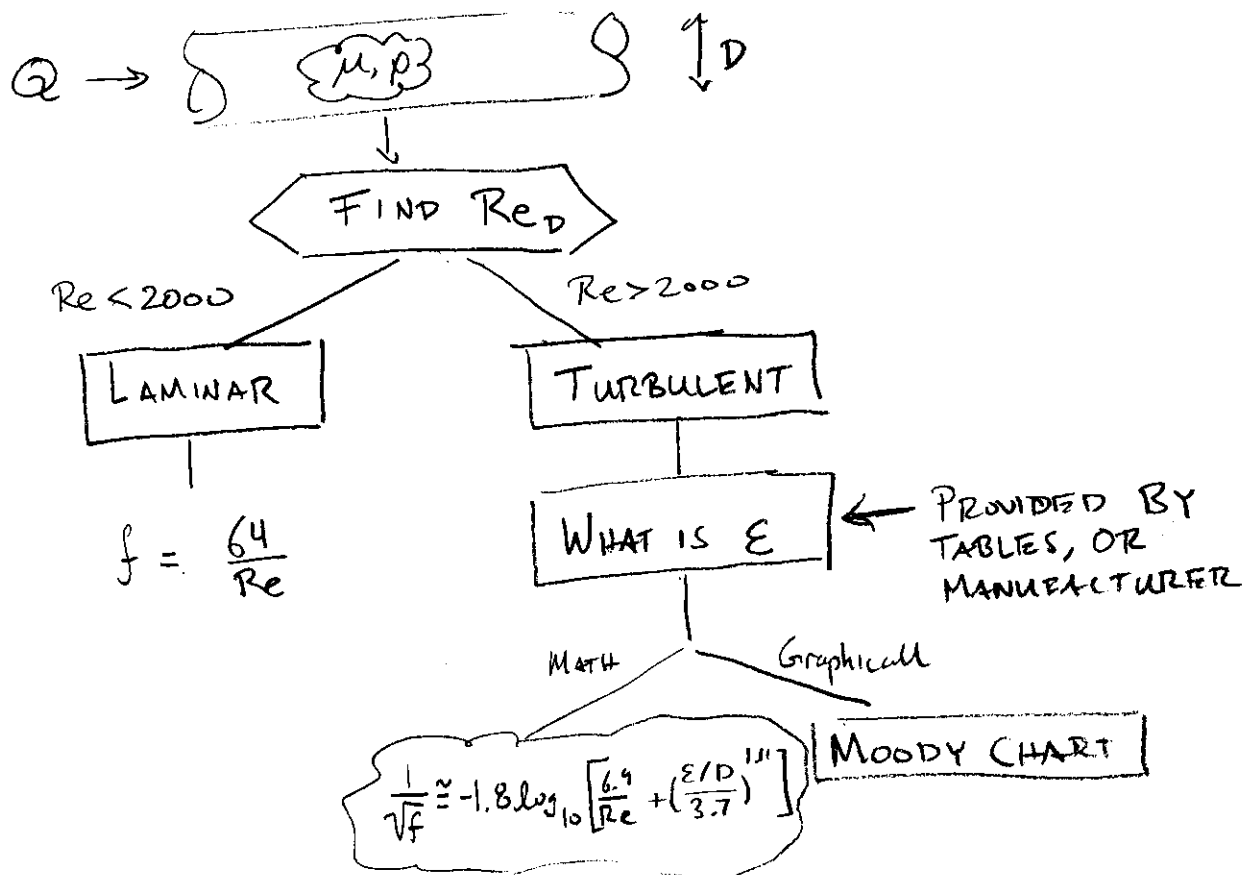 Q → μ, ρ D
FIND Re_D
Re < 2000 Re > 2000
LAMINAR TURBULENT
f = 64/Re
WHAT IS ε ← PROVIDED BY
TABLES, OR
MANUFACTURER
MATH Graphicall
1/√f ≅ -1.8 log₁₀ [6.9/Re + (ε/D / 3.7)^1.11]
MOODY CHART